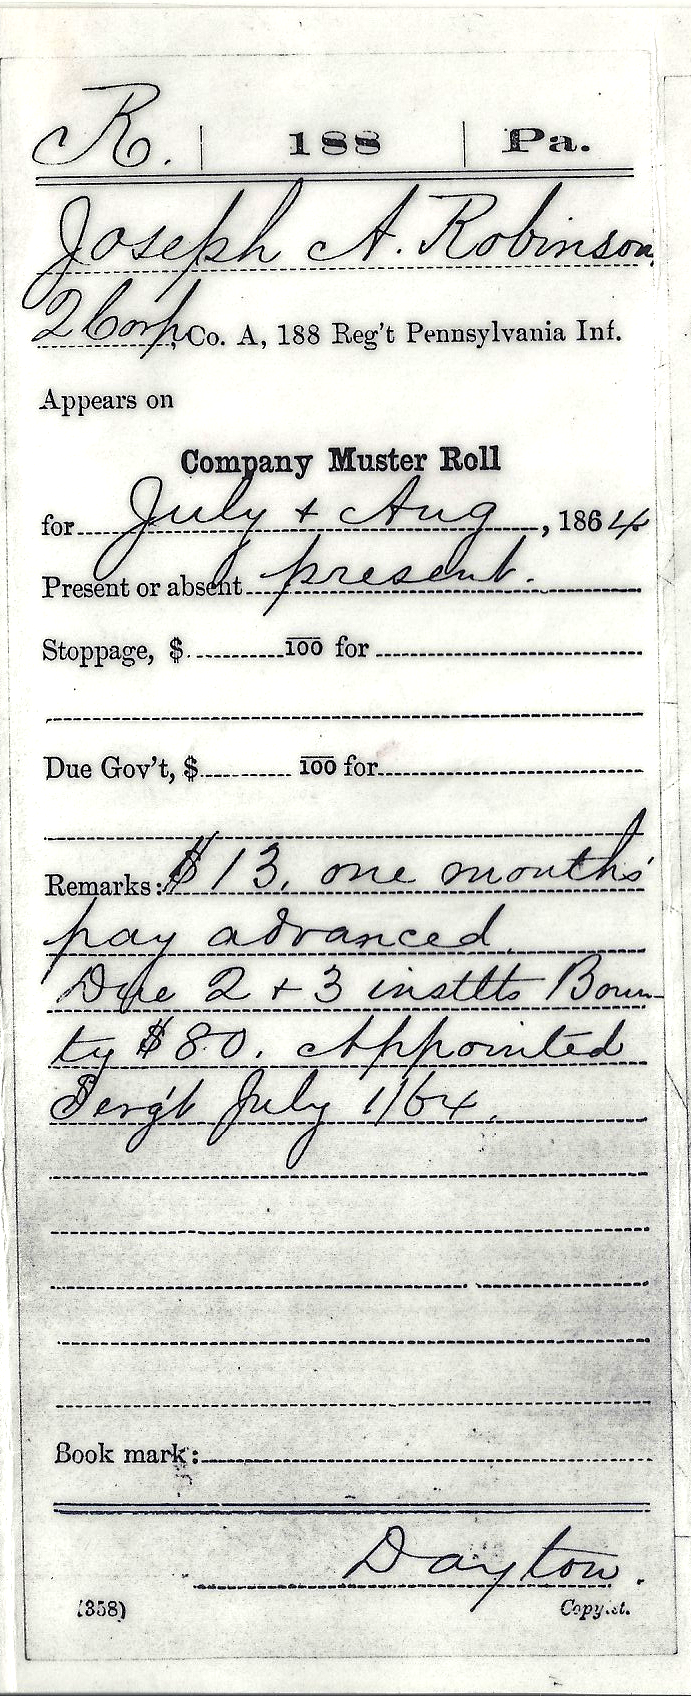 R. 188 Pa.
Joseph A. Robinson
2 Corp, Co. A, 188 Reg't Pennsylvania Inf.
Appears on
Company Muster Roll
for July + Aug, 1864
Present or absent present.
Stoppage, $ 100 for
Due Gov't, $ 100 for
Remarks: $13, one months'
pay advanced.
Due 2 + 3 instlts Boun-
ty $80. Appointed
Serg't July 1/64.
Book mark:
Dayton.
(358) Copyist.